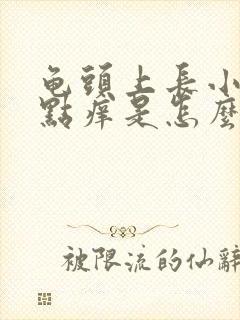 龟頭上長小
點痒是怎麼
被限流的仙辭